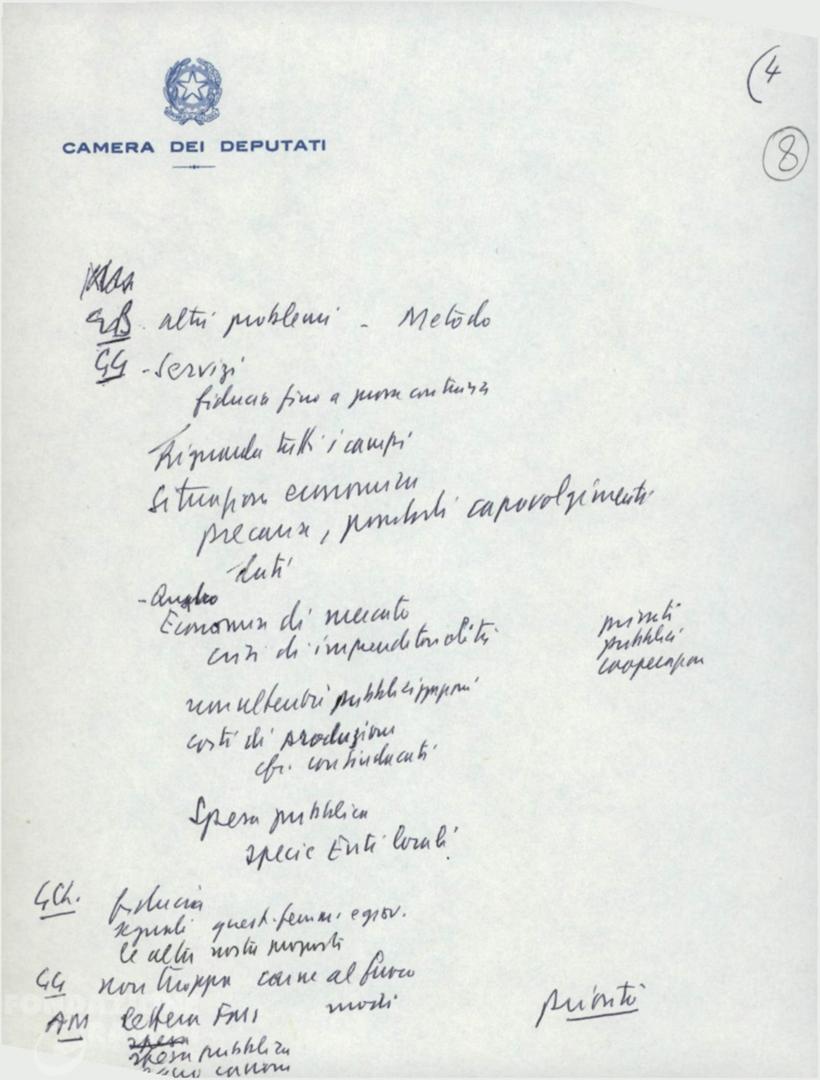 (4
8
CAMERA DEI DEPUTATI
altri problemi - Metodo
GG - Servizi
fiducia fino a prova contraria
Riguarda tutti i campi
Situazione economica
precaria, possibili capovolgimenti
Economia di mercato
crisi di imprenditorialità
privati
pubblici
cooperazion
non ulteriori pubblicizzazioni
costi di produzione
cfr. coi sindacati
Spesa pubblica
specie Enti locali
G.Ch. fiducia
segnali quest. femm. e giov.
le altre nostre proposte
GG non troppa carne al fuoco
AM lettera FMI modi priorità
spesa
spesa pubblica